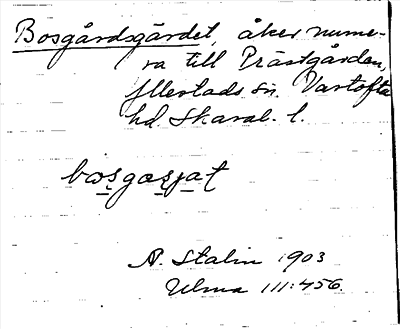 Bosgårdsgärdet, åker nume-
ra till Prästgården,
Yllestads sn. Vartofta
hd. Skarab. l.
bosgɑsjat
A. Stalin 1903
Ulma 111:456.